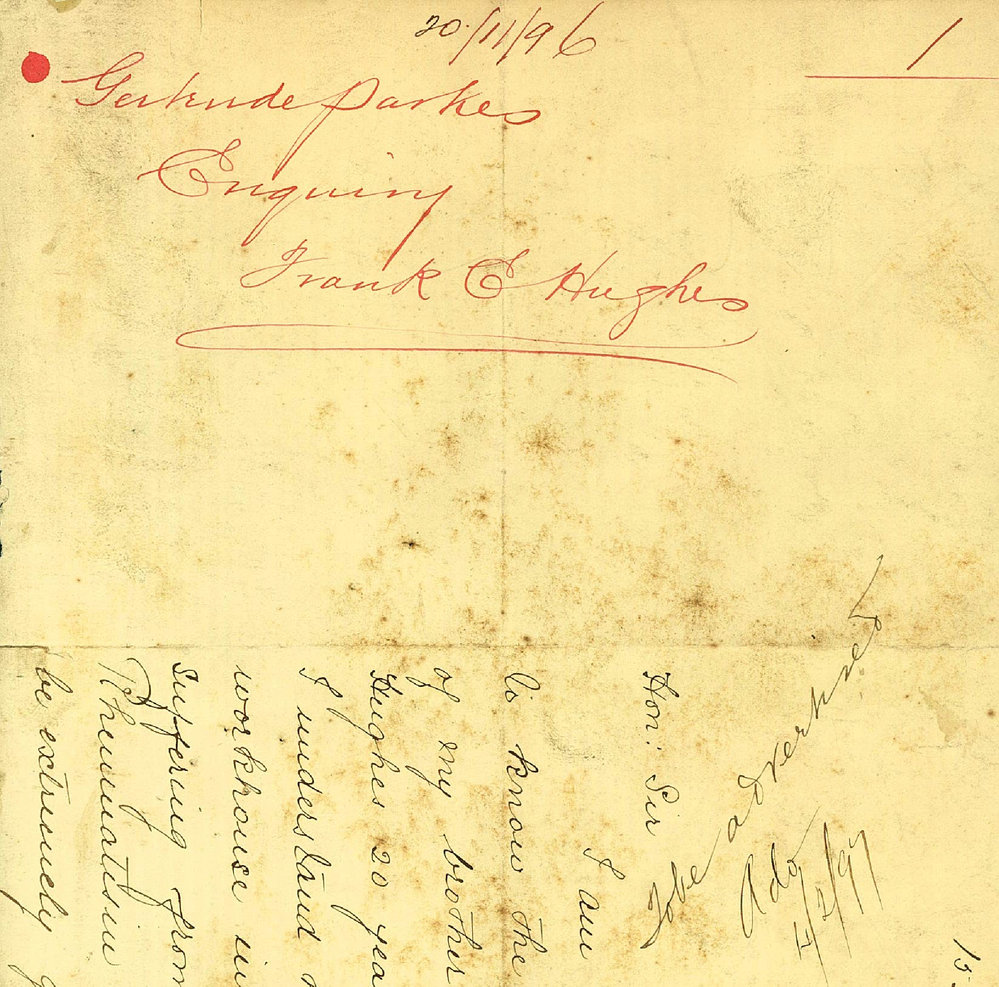 20/11/96
1
Gertrude Parkes
Enquiry
Frank E Hughes
To be advertised
Ado
1/2/97
Hon: Sir
I am
to know the
of my brother
Hughes 20 yea
I understand
workhouse in
suffering from
Rhumatism
be extremely g
15